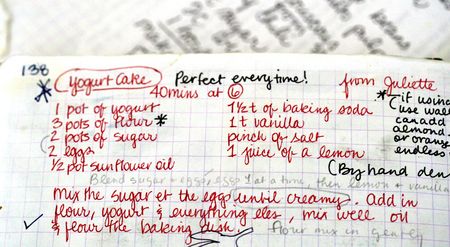 138
Yogurt Cake Perfect everytime! from Juliette
40mins at 6
1 pot of yogurt 1½t of baking soda
3 pots of flour * 1 t vanilla
2 pots of sugar pinch of salt
2 eggs 1 juice of a lemon
½ pot sunflower oil
* (if using
can add
almond
or orange
endless
(By hand
Blend sugar + eggs, eggs 1 at a time, then lemon + vanilla
mix the sugar et the eggs until creamy. Add in
flour, yogurt & everything eles, mix well oil
& flour the baking dish.
flour mix in gently